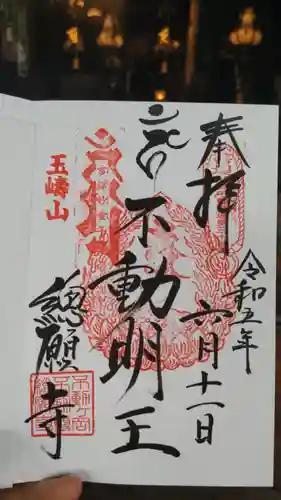 奉拝
令和五年
六月十一日
不動明王
五峰山
總願寺